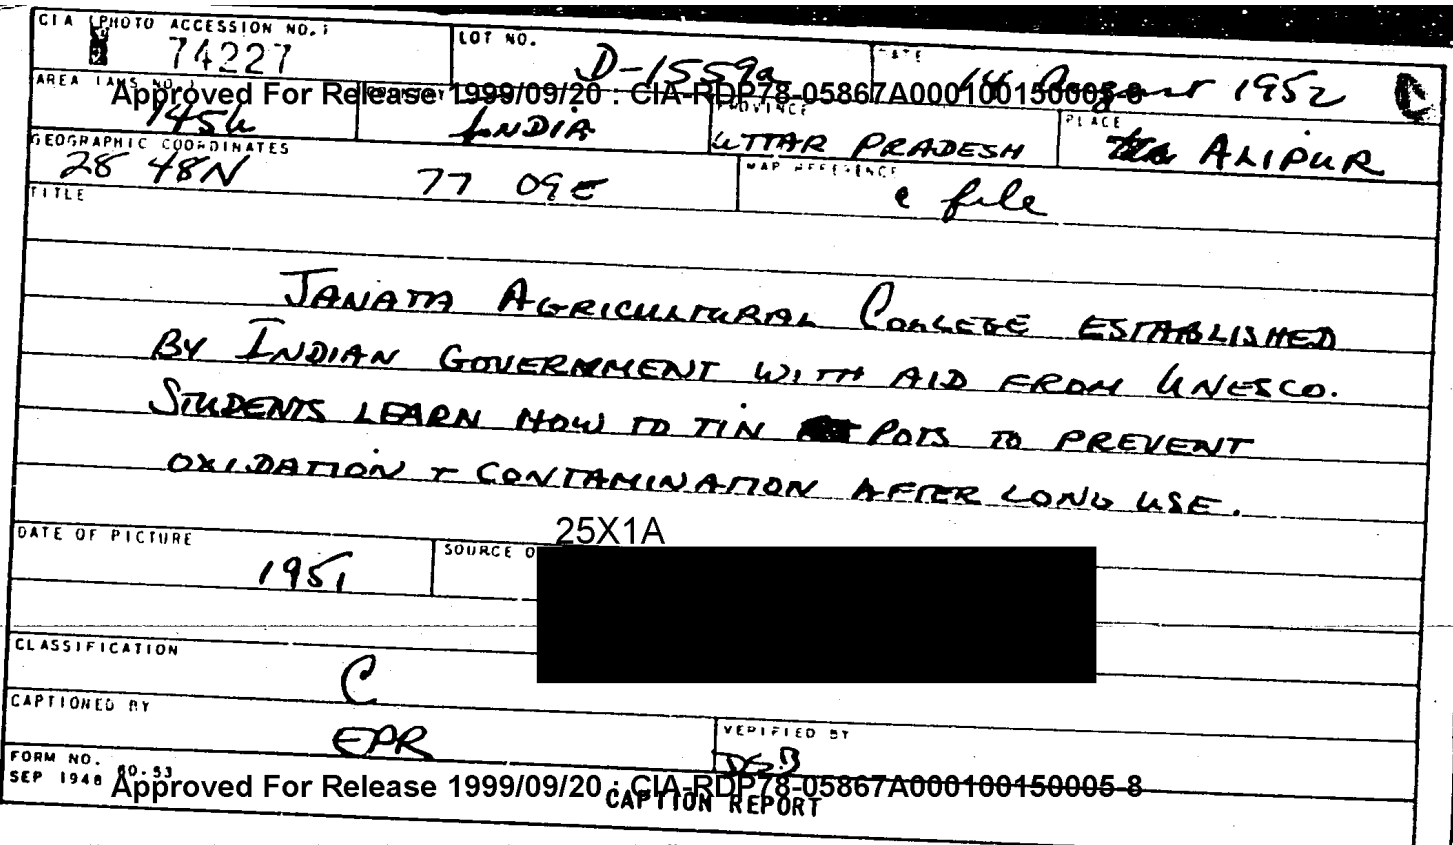 CIA PHOTO ACCESSION NO.
74227
LOT NO.
D-1559a
DATE
14 August 1952
AREA (AMS NO.)
Approved For Release 1999/09/20 : CIA-RDP78-05867A000100150005-8
745h
INDIA
PROVINCE
UTTAR PRADESH
PLACE
ALIPUR
GEOGRAPHIC COORDINATES
28 48N 77 09E
MAP REFERENCE
c file
TITLE
JANATA AGRICULTURAL COLLEGE ESTABLISHED
BY INDIAN GOVERNMENT WITH AID FROM UNESCO.
STUDENTS LEARN HOW TO TIN POTS TO PREVENT
OXIDATION + CONTAMINATION AFTER LONG USE.
DATE OF PICTURE
1951
SOURCE O
25X1A
CLASSIFICATION
C
CAPTIONED BY
EPR
VERIFIED BY
DGB
FORM NO. 60-53
SEP 1948
Approved For Release 1999/09/20 : CIA-RDP78-05867A000100150005-8
CAPTION REPORT